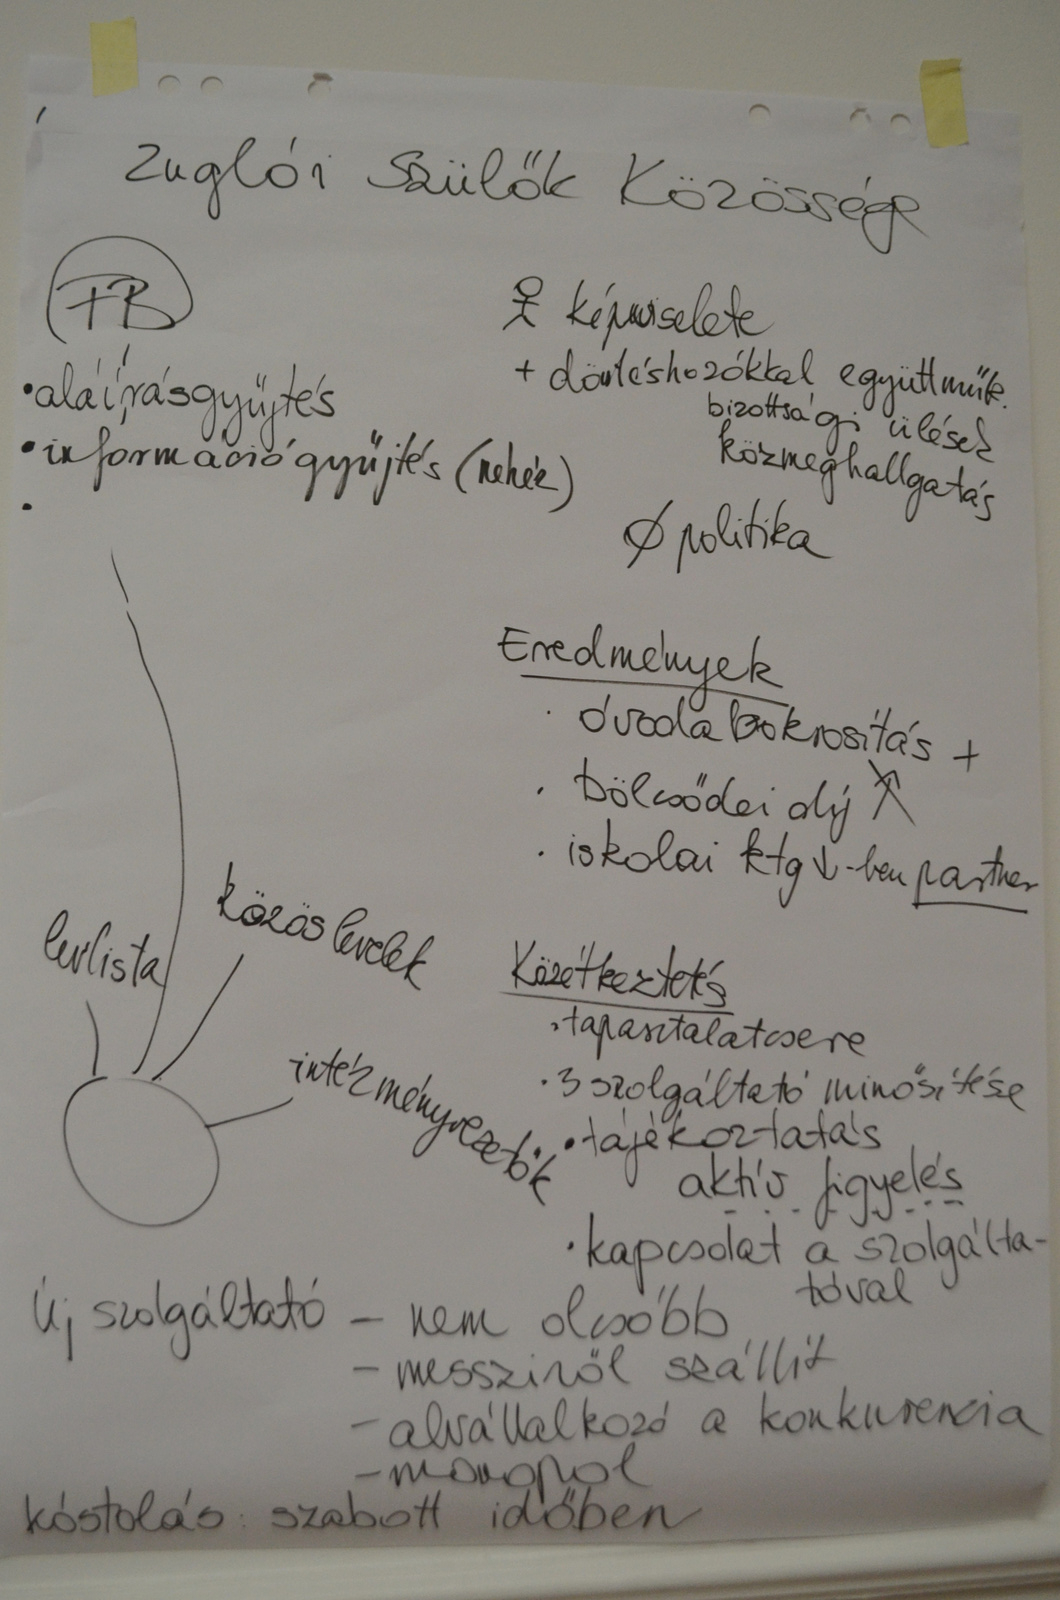 Zuglói Szülők Közössége
FB
• aláírásgyűjtés
• információgyűjtés (nehéz)
•
képviselete
+ döntéshozókkal együttműk.
bizottsági ülések
közmeghallgatás
Ø politika
Eredmények
· óvoda bokrosítás +
· bölcsődei díj
· iskolai ktg ↓-ben partner
levlista
közös levelek
intézményvezetők
Közétkeztetés
· tapasztalatcsere
· 3 szolgáltató minősítése
• tájékoztatás
aktív figyelés
· kapcsolat a szolgálta-
tóval
Új szolgáltató – nem olcsóbb
– messziről szállít
– alvállalkozó a konkurencia
– monopol
kóstolás: szabott időben